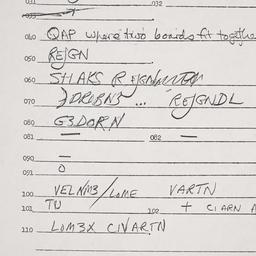 031 032
033
040 GAP where two boards fit togethe
050 REIGN
060 SHAKS R
070 ... REIGNDL
080 G3DORN
081 — 082 —
090 —
091 0
100 VELNM3/LOME VARTN
101 TU 102 + CIARN A
110 LOM3X CIVARTN